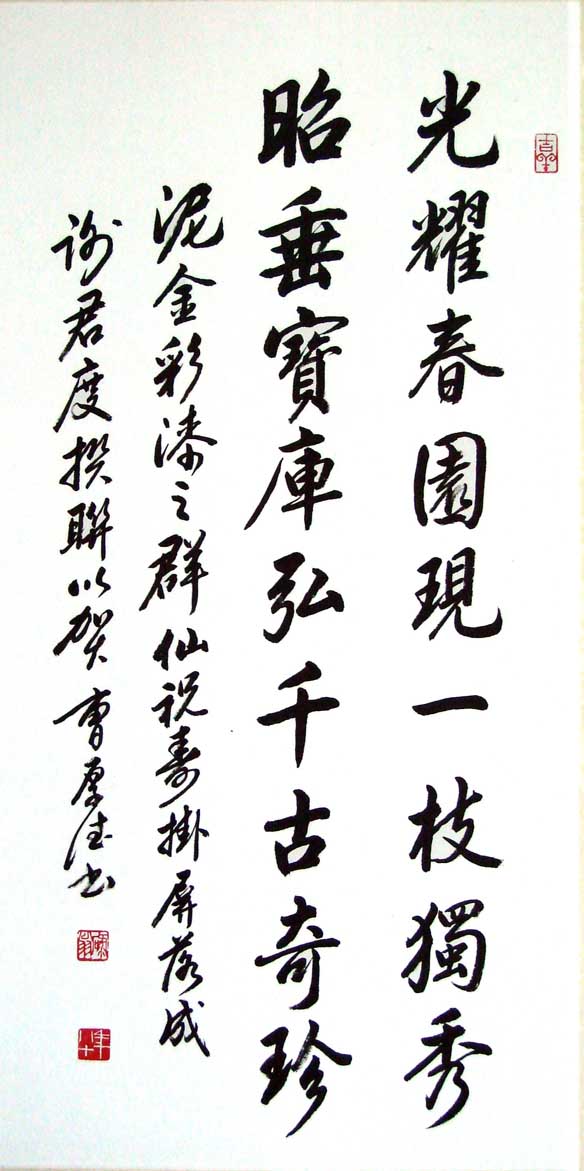 光耀春園現一枝獨秀
昭垂寶庫弘千古奇珍
泥金彩漆之群仙祝壽掛屏落成
谢君度撰聯以贺 曹厚德书